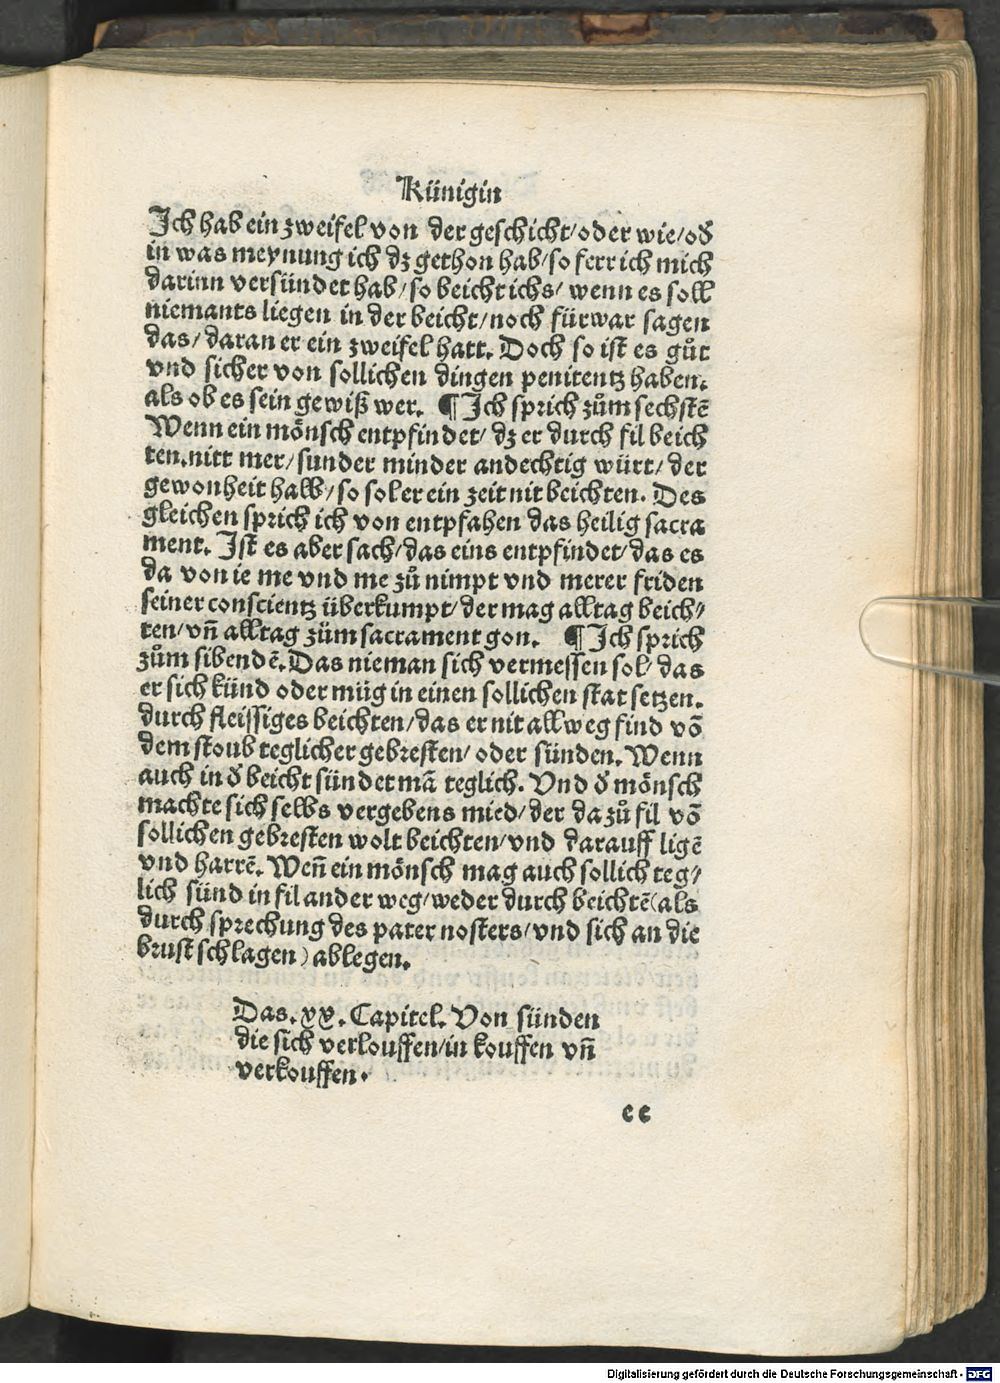 Künigin
Jch hab ein zweifel von der geschicht/oder wie/oď
in was meynung ich dz gethon hab/so ferr ich mich
darinn versündet hab/so beicht ichs/ wenn es soll
niemants liegen in der beicht/noch fürwar sagen
das/daran er ein zweifel hatt. Doch so ist es gůt
vnd sicher von sollichen dingen penitentz haben.
als ob es sein gewiß wer. ¶ Jch sprich zům sechstē
Wenn ein mönsch entpfindet/ dz er durch fil beich
ten.nitt mer/sunder minder andechtig würt/der
gewonheit halb/so sol er ein zeit nit beichten. Des
gleichen sprich ich von entpfahen das heilig sacra
ment. Jst es aber sach/das eins entpfindet/das es
da von ie me vnd me zů nimpt vnd merer friden
seiner conscientz überkumpt/der mag alltag beich/
ten/vn̄ alltag züm sacrament gon. ¶ Jch sprich
zům sibendē. Das nieman sich vermessen sol/das
er sich künd oder müg in einen sollichen stat setzen.
durch fleissiges beichten/das er nit allweg find vō
dem stoub teglicher gebresten/oder sünden. Wenn
auch in ď beicht sündet mā teglich. Vnd ď mönsch
machte sich selbs vergebens mied/der da zů fil vō
sollichen gebresten wolt beichten/vnd darauff ligē
vnd harrē. Wen̄ ein mönsch mag auch sollich teg/
lich sünd in fil ander weg/weder durch beichtē(als
durch sprechung des pater nosters/vnd sich an die
brust schlagen) ablegen.
Das.xx.Capitel. Von sünden
die sich verlouffen/in kouffen vn̄
verkouffen.
cc
Digitalisierung gefördert durch die Deutsche Forschungsgemeinschaft - DFG